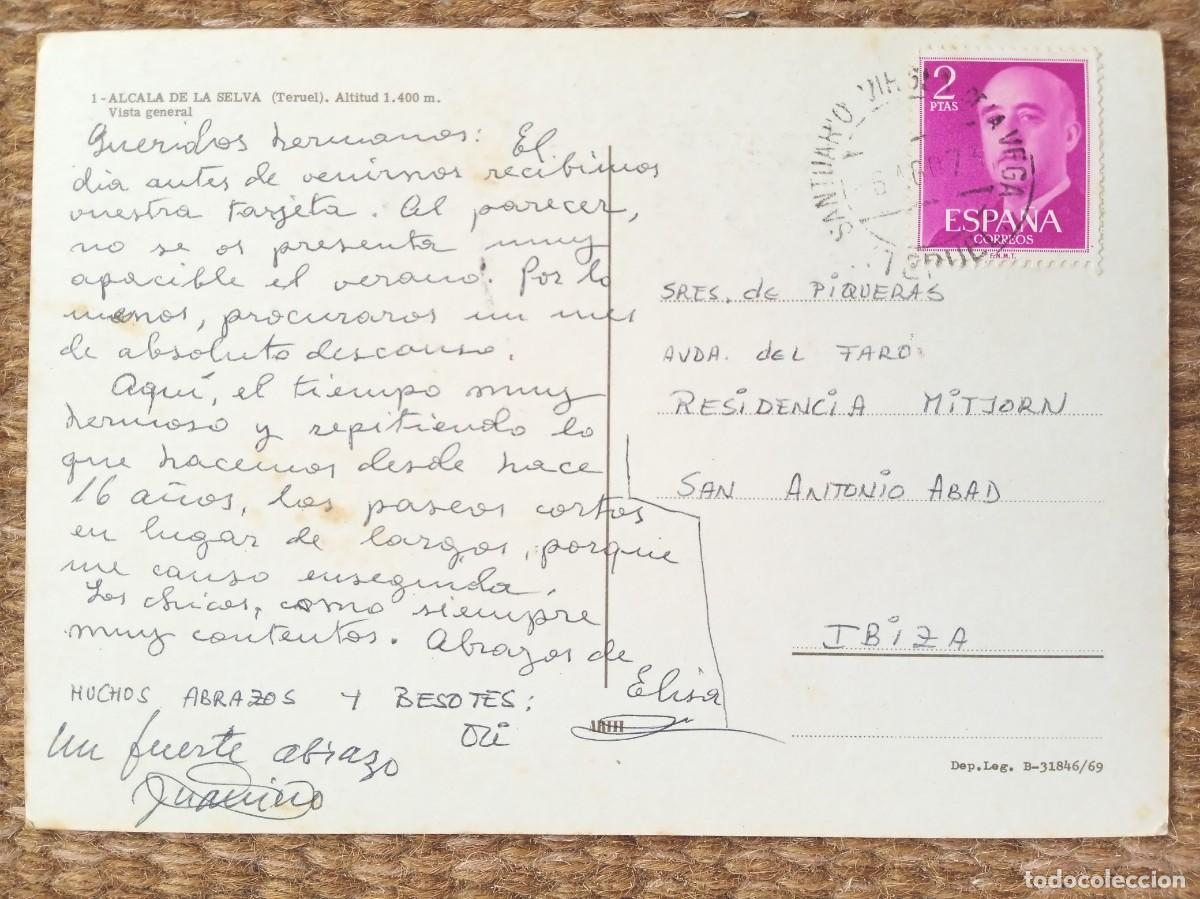 1-ALCALA DE LA SELVA (Teruel). Altitud 1.400 m.
Vista general
Queridos hermanos: El
dia antes de venirnos recibimos
vuestra tarjeta. Al parecer,
no se os presenta muy
apacible el verano. Por lo
menos, procuraros un mes
de absoluto descanso.
Aquí, el tiempo muy
hermoso y repitiendo lo
que hacemos desde hace
16 años, los paseos cortos
en lugar de largos, porque
me canso enseguida.
Los chicos, como siempre
muy contentos. Abrazos de
Elisa
MUCHOS ABRAZOS Y BESOTES:
Un fuerte abrazo
2
PTAS
ESPAÑA
CORREOS
F.N.M.T.
SANTUARIO VIRGEN DE LA VEGA
TERUEL
SRES. de PIQUERAS
AVDA. del FARO
RESIDENCIA MITJORN
SAN ANTONIO ABAD
IBIZA
Dep.Leg. B-31846/69
todocoleccion